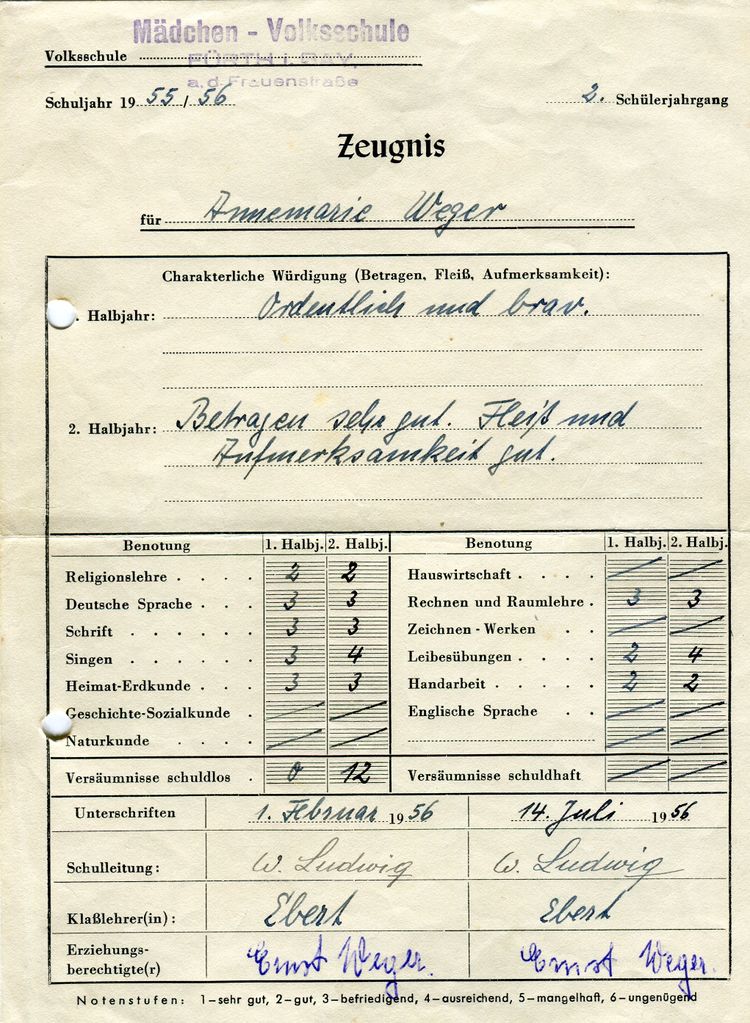 Mädchen - Volksschule
Volksschule FÜRTH i. BAY.
a. d. Frauenstraße
Schuljahr 19 55 / 56 2. Schülerjahrgang
Zeugnis
für Annemarie Weger
Charakterliche Würdigung (Betragen, Fleiß, Aufmerksamkeit):
. Halbjahr: Ordentlich und brav.
2. Halbjahr: Betragen sehr gut. Fleiß und
Aufmerksamkeit gut.
Benotung 1. Halbj. 2. Halbj. Benotung 1. Halbj. 2. Halbj.
Religionslehre . . . . 2 2 Hauswirtschaft . . . . / /
Deutsche Sprache . . . 3 3 Rechnen und Raumlehre . 3 3
Schrift . . . . . . 3 3 Zeichnen - Werken . . / /
Singen . . . . . . 3 4 Leibesübungen . . . . 2 4
Heimat-Erdkunde . . . 3 3 Handarbeit . . . . . 2 2
Geschichte-Sozialkunde . / / Englische Sprache . . / /
Naturkunde . . . . / / / /
Versäumnisse schuldlos . 0 12 Versäumnisse schuldhaft / /
Unterschriften 1. Februar 1956 14. Juli 1956
Schulleitung: W. Ludwig W. Ludwig
Klaßlehrer(in): Ebert Ebert
Erziehungs-
berechtigte(r) Ernst Weger. Ernst Weger.
Notenstufen: 1—sehr gut, 2—gut, 3—befriedigend, 4—ausreichend, 5—mangelhaft, 6—ungenügend